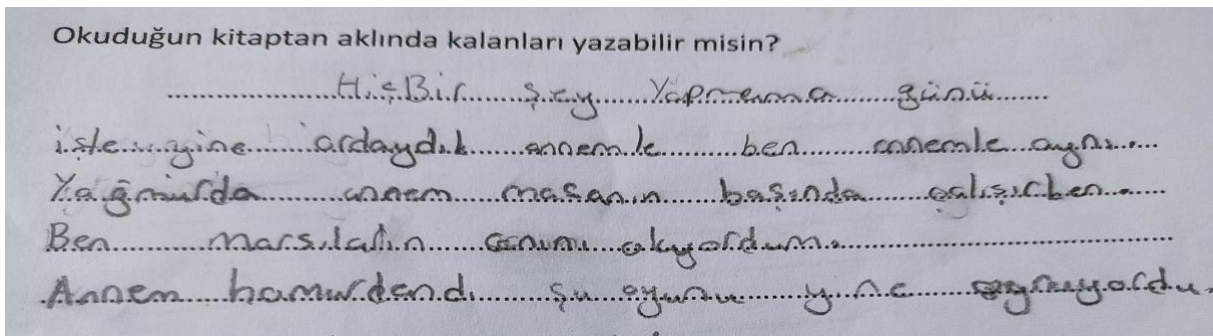 Okuduğun kitaptan aklında kalanları yazabilir misin?
HişBir şey Yapmama günü
işte yine ordaydık annemle ben annemle aynı
Yağmurda annem masanın başında çalışırken
Ben marsılaların canını okuyordum.
Annem homurdandı şu oyunu yine oynuyordu.